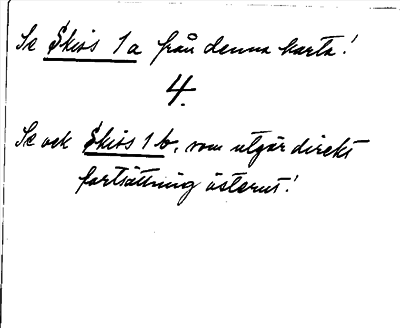 Se Skiss 1a från denna karta!
4.
Se ock Skiss 1b, som utgör direkt
fortsättning österut!